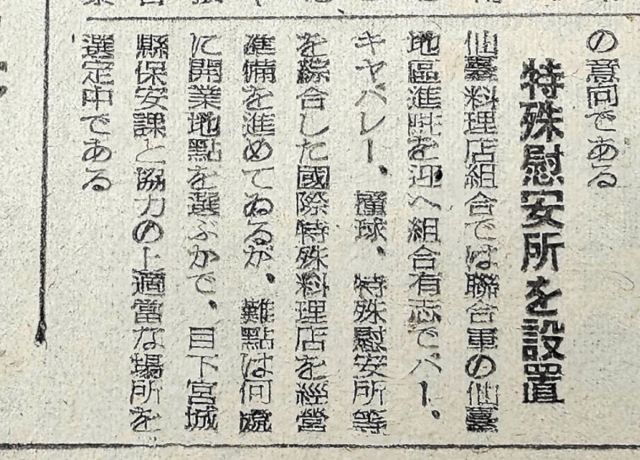 の意向である
特殊慰安所を設置
仙臺料理店組合では聯合軍の仙臺
地區進駐を迎へ組合有志でバー、
キャバレー、撞球、特殊慰安所等
を綜合した國際特殊料理店を經營
準備を進めてゐるが、難點は何處
に開業地點を選ぶかで、目下宮城
縣保安課と協力の上適當な場所を
選定中である